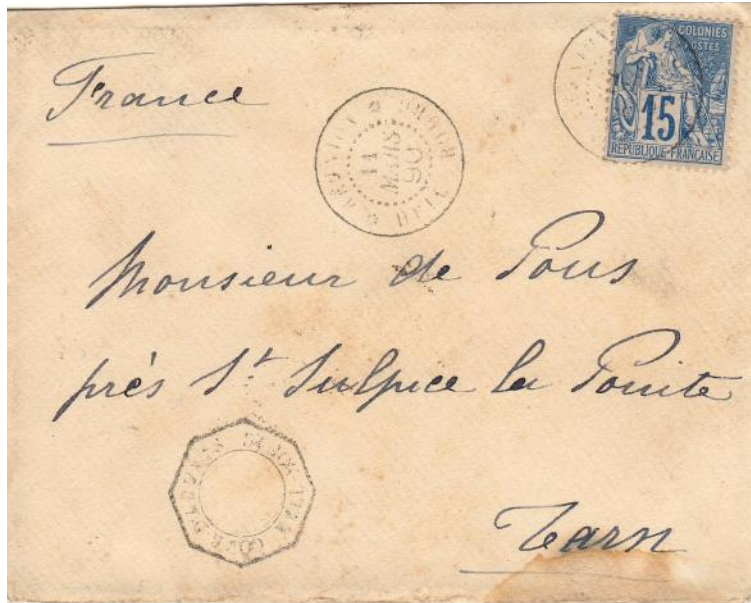 France
COLONIES
POSTES
15
REPUBLIQUE FRANÇAISE
HELL BOURG
REUNION
11
MARS
90
Monsieur de Pons
près St Sulpice la Pointe
Tarn